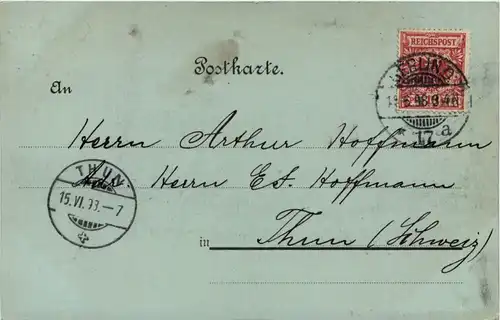 REICHSPOST
Postkarte.
An
Herrn Arthur Hoffmann
THUN
Herrn Ed. Hoffmann
15. VI. 93. - 7
in Thun (Schweiz)